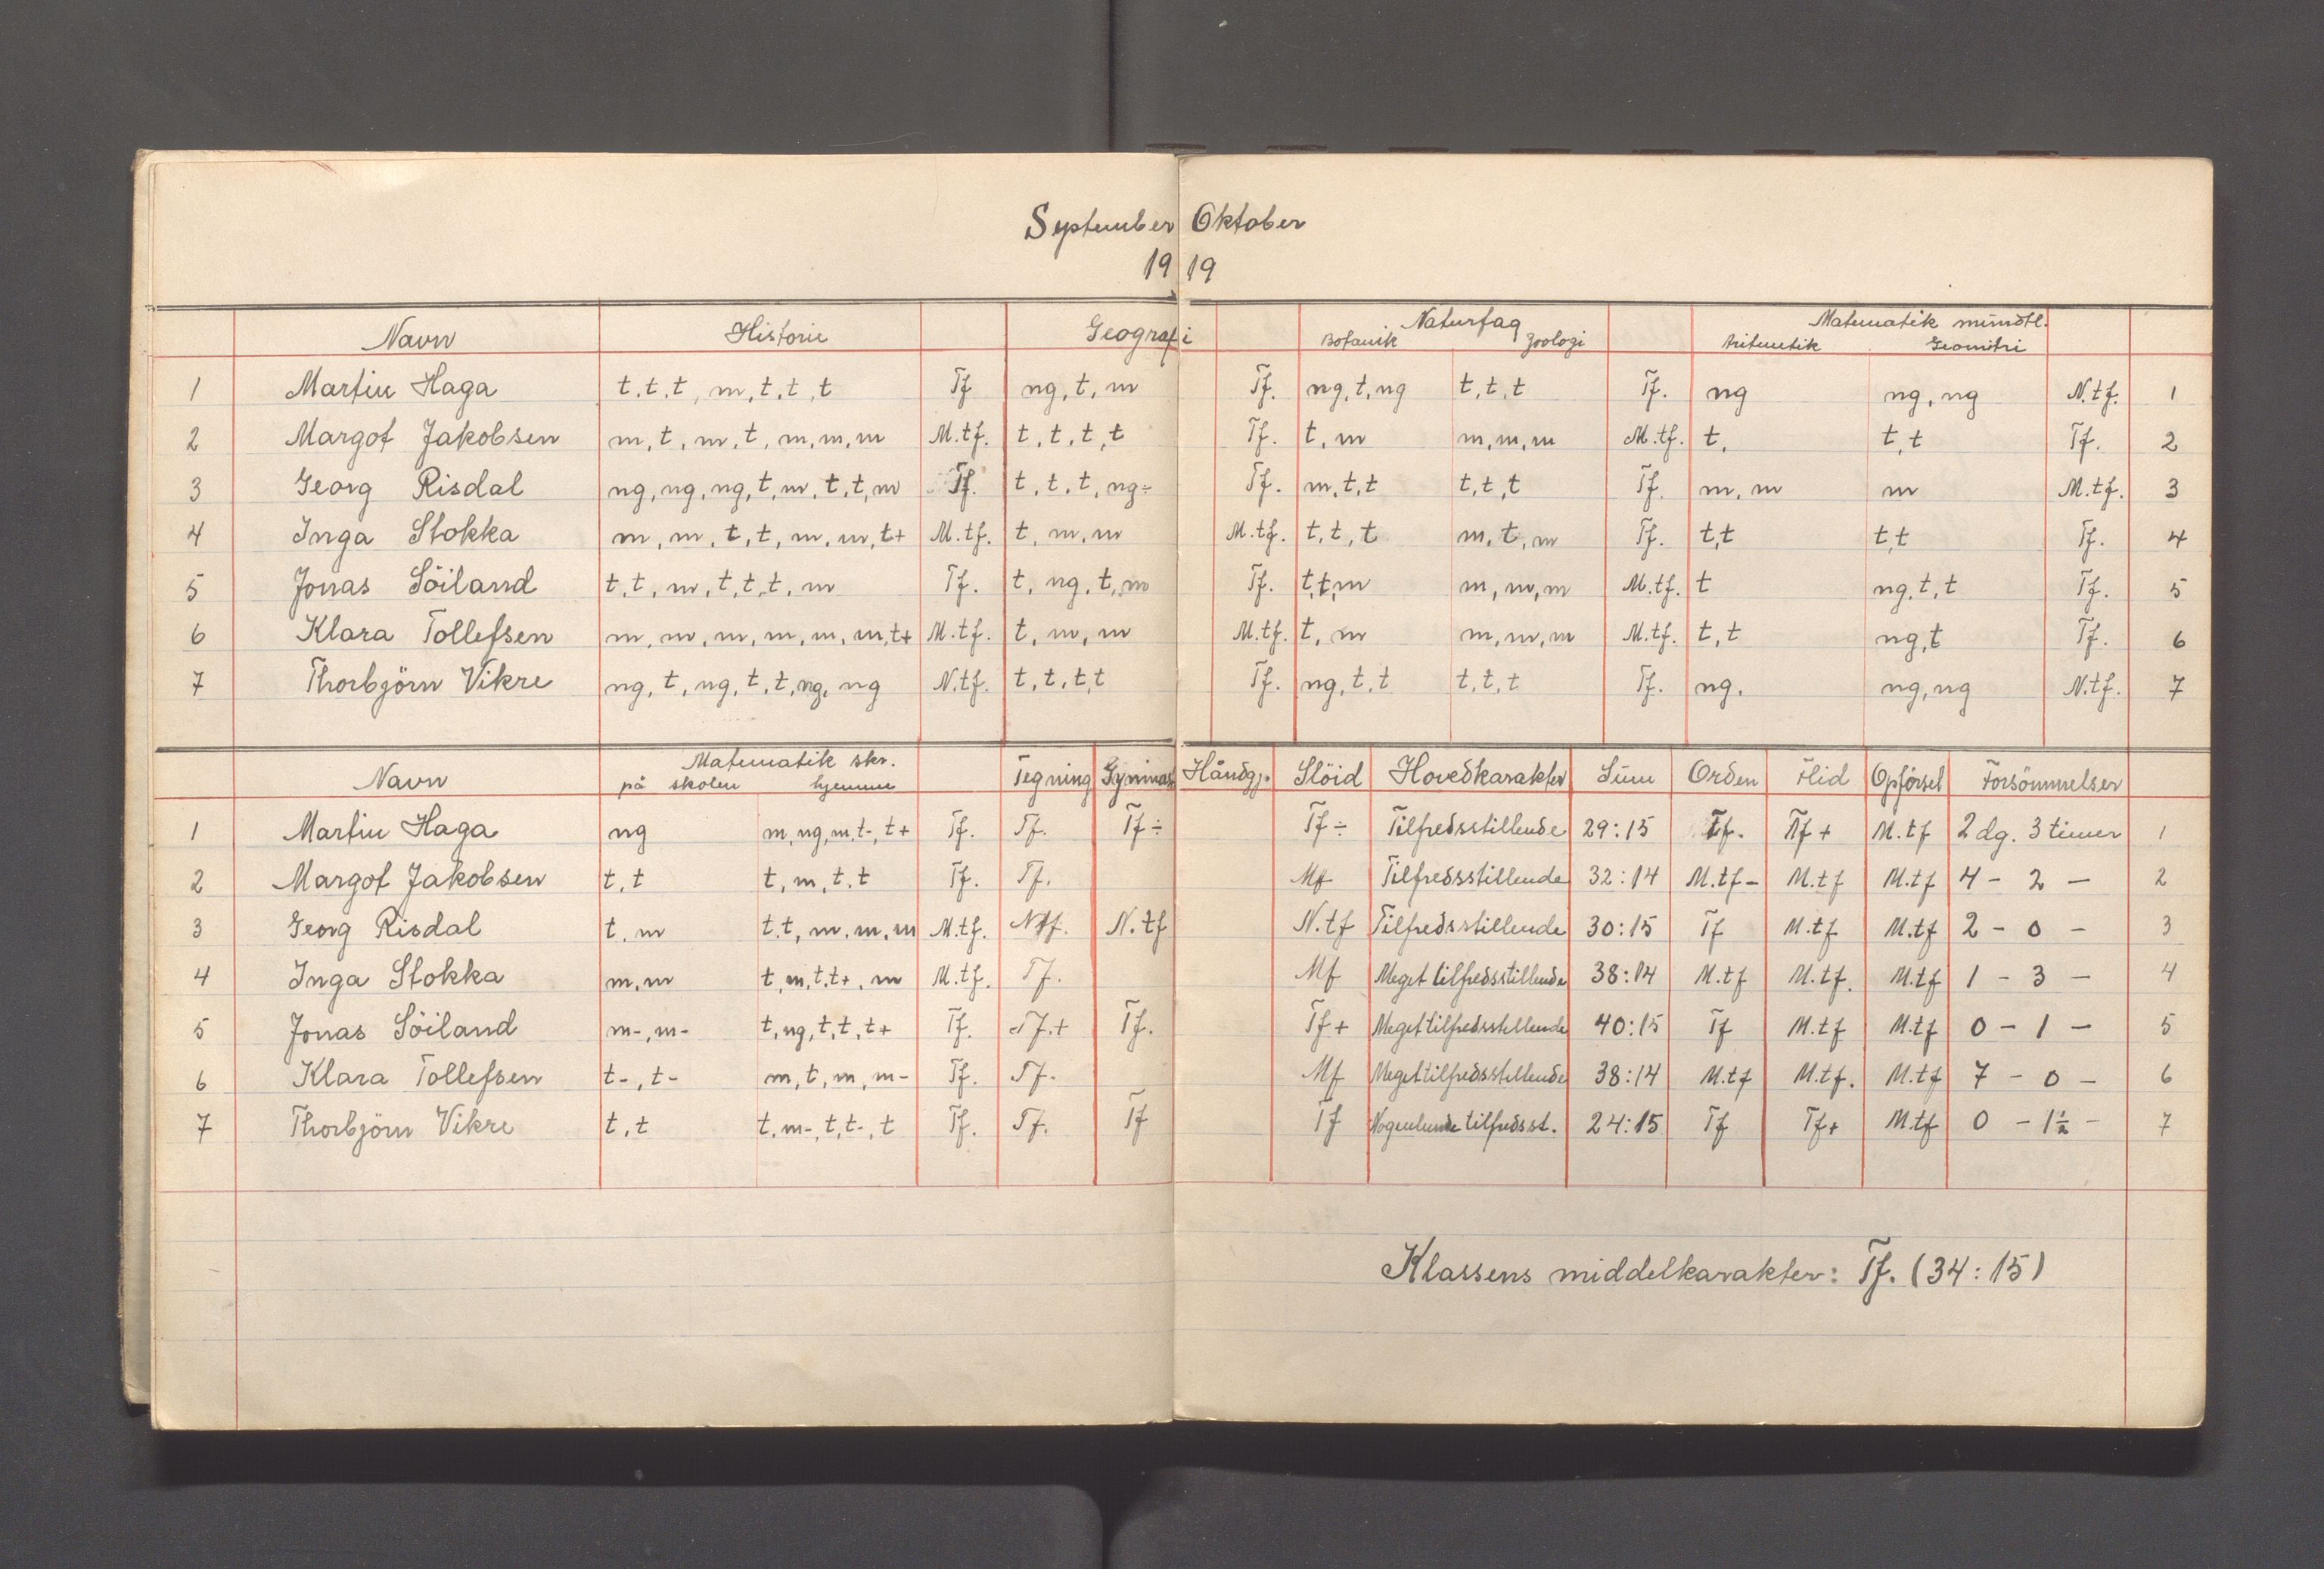 September Oktober
19 19
Navn Historie Geografi Naturfag Matematik mundtl.
Botanik Zoologi Aritmetik Geometri
1 Martin Haga t, t, t, m, t, t, t Tf ng, t, m Tf. ng, t, ng t, t, t Tf. ng ng, ng N.tf. 1
2 Margot Jakobsen m, t, m, t, m, m, m M.tf. t, t, t, t Tf. t, m m, m, m M.tf. t, t, t Tf. 2
3 Georg Risdal ng, ng, ng, t, m, t, t, m Tf. t, t, t, ng÷ Tf. m, t, t t, t, t Tf. m, m m M.tf. 3
4 Inga Stokka m, m, t, t, m, m, t+ M.tf. t, m, m M.tf. t, t, t m, t, m Tf. t,t t,t Tf. 4
5 Jonas Söiland t, t, m, t, t, t, m Tf. t, ng, t, m Tf. t,t,m m, m, m M.tf. t ng, t, t Tf. 5
6 Klara Tollefsen m, m, m, m, m, m, t+ M.tf. t, m, m M.tf. t, m m, m, m M.tf. t, t ng,t Tf. 6
7 Thorbjörn Vikre ng, t, ng, t, t, ng, ng N.tf. t, t, t, t Tf. ng, t, t t, t, t Tf. ng. ng, ng N.tf. 7
Navn Matematik skr. Tegning Gymnast Håndgj. Slöid Hovedkarakter Sum Orden Flid Opförsel Forsömmelser
på skolen hjemme
1 Martin Haga ng m, ng, m, t-, t+ Tf. Tf. Tf÷ Tf÷ Tilfredsstillende 29:15 Tf. Tf+ M.tf 2 dg. 3 timer 1
2 Margot Jakobsen t, t t, m, t, t Tf. Tf. Mf Tilfredsstillende 32:14 M.tf- M.tf M.tf 4 - 2 - 2
3 Georg Risdal t, m t, t, m, m, m M.tf. Ntf. N.tf N.tf Tilfredsstillende 30:15 Tf M.tf M.tf 2 - 0 - 3
4 Inga Stokka m, m t, m, t, t+, m M.tf. Tf. Mf Meget tilfredsstillende 38:14 M.tf M.tf. M.tf 1 - 3 - 4
5 Jonas Söiland m-, m- t, ng, t, t, t+ Tf. Tf.+ Tf. Tf+ Meget tilfredsstillende 40:15 Tf M.tf M.tf 0 - 1 - 5
6 Klara Tollefsen t-, t- m, t, m, m- Tf. Tf. Mf Meget tilfredsstillende 38:14 M.tf M.tf. M.tf 7 - 0 - 6
7 Thorbjörn Vikre t, t t, m-, t, t-, t Tf. Tf. Tf Tf Nogenlunde tilfredsst. 24:15 Tf Tf+ M.tf 0 - 1½ - 7
Klassens middelkarakter: Tf. (34:15)